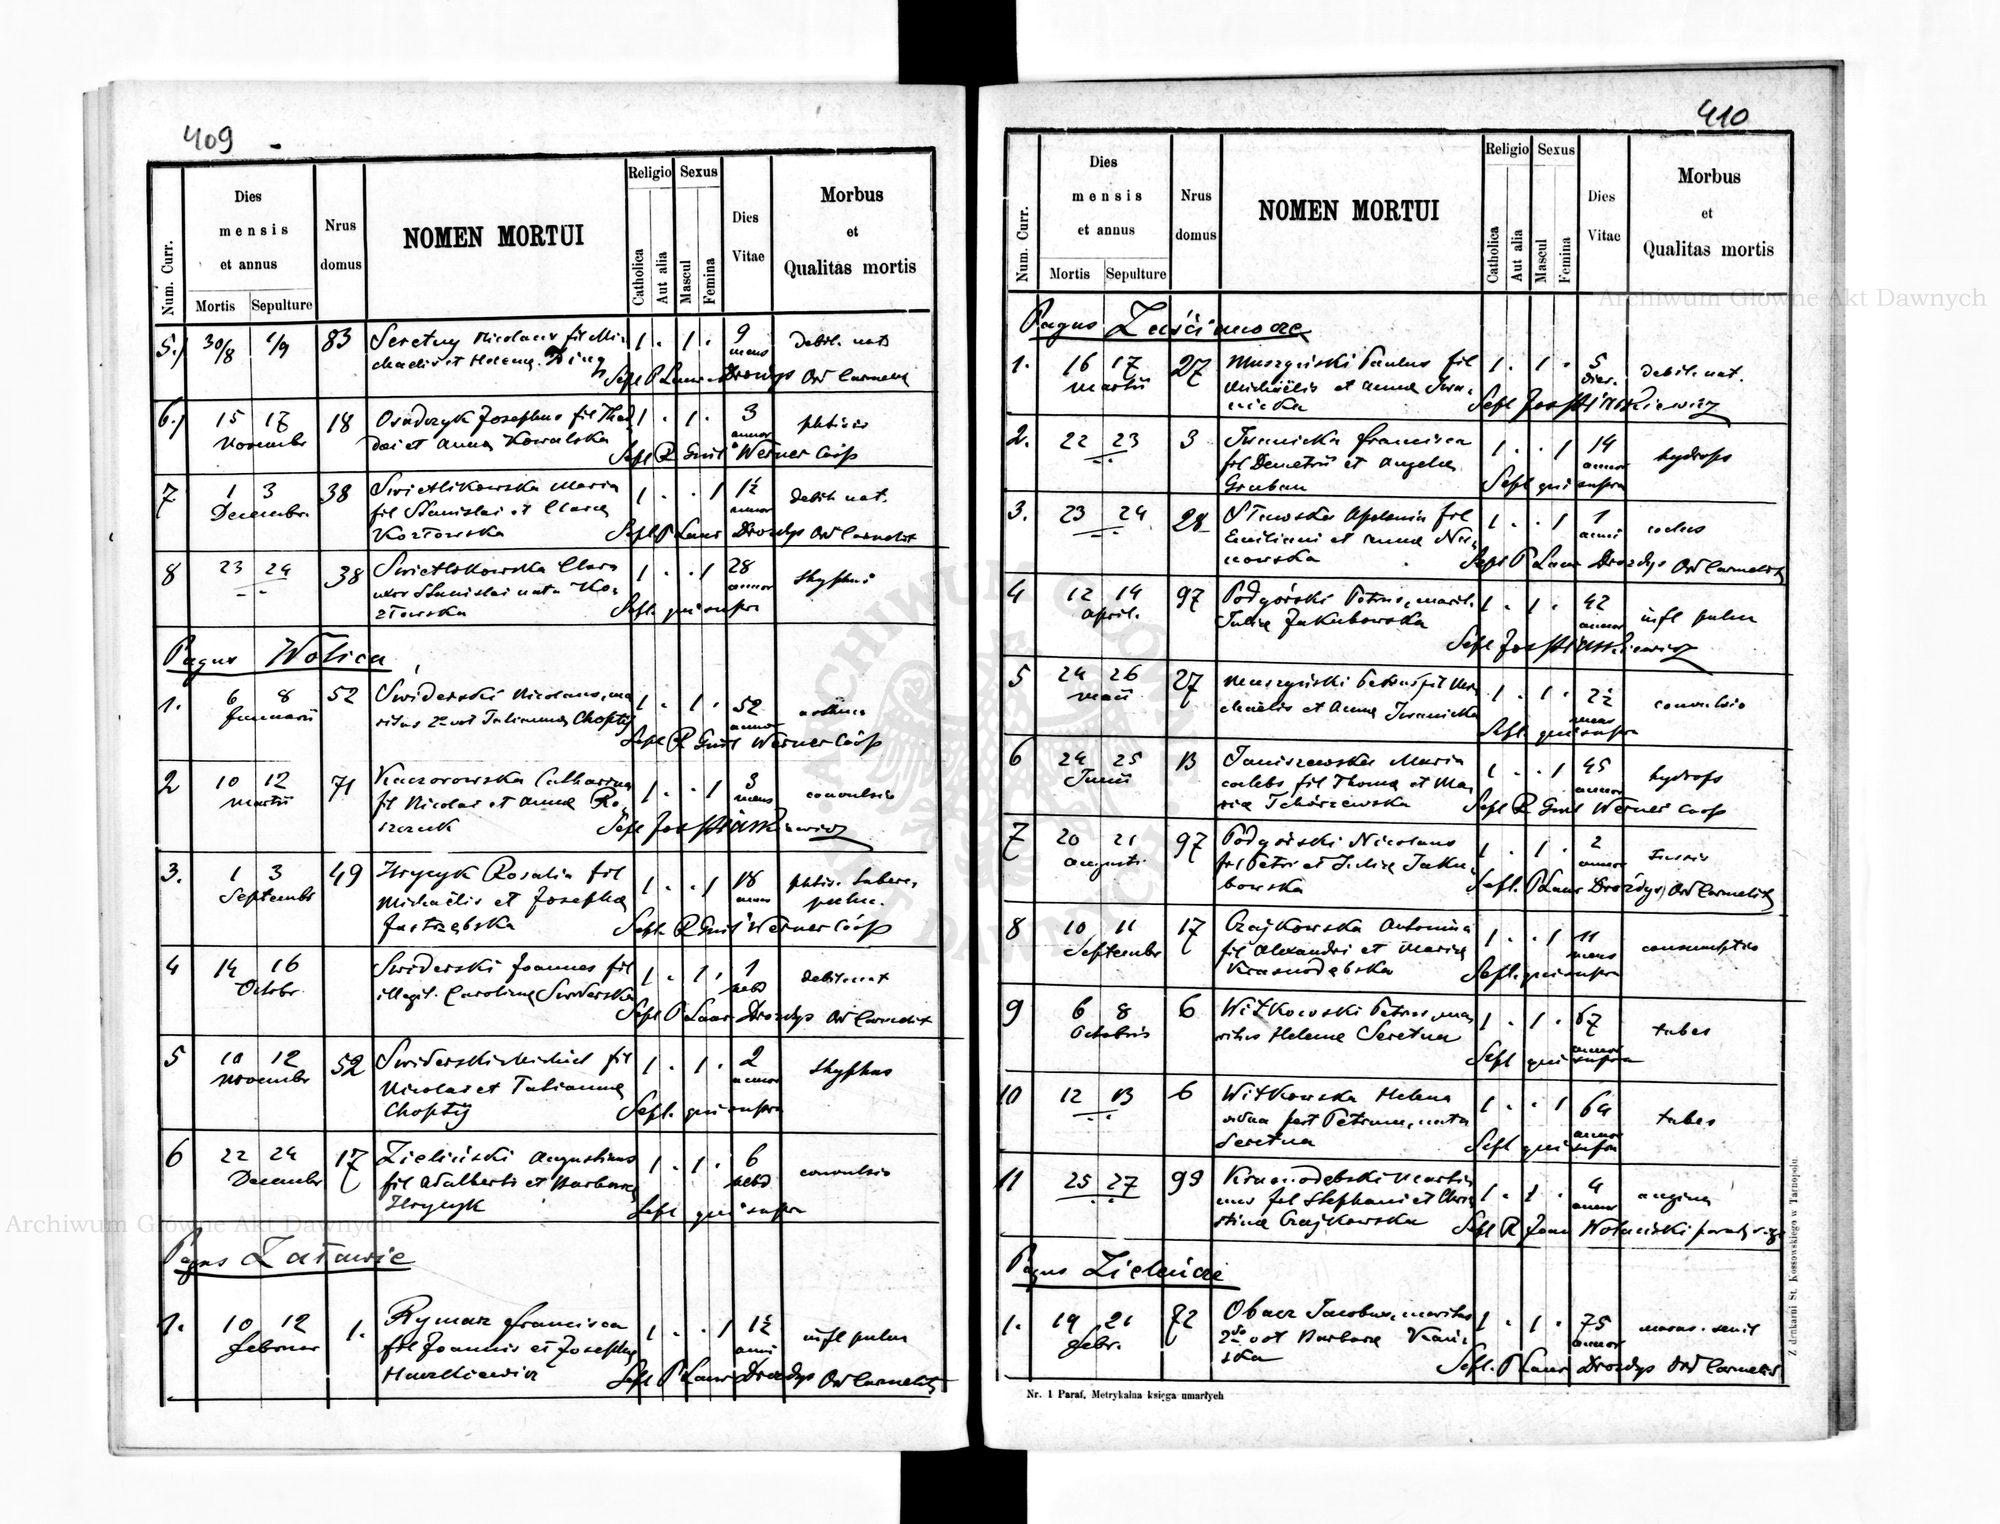 409
Num. Curr.
Dies
mensis
et annus
Mortis
Sepulture
Nrus
domus
NOMEN MORTUI
Religio
Catholica
Aut alia
Sexus
Mascul
Femina
Dies
Vitae
Morbus
et
Qualitas mortis
5.) 30/8 1/9 83 Seretny Nicolaus fil Mi- 1 . 1 . 9 debil. nat
chaelis et Helena mens
Sepl P Laur Drozdys Ord Carmelit
6.) 15 17 18 Osadczyk Josephus fil Thad 1 . 1 . 3 phtisis
Novembr daei et Anna Kowalska annor
Sepl R Guil Werner Coop
7 1 3 38 Swietlikowska Maria 1 . . 1 1½ debil. nat.
Decembr. fil Stanislai et Clara annor
Kozłowska Sepl P Laur Drozdys Ord Carmelit
8 23 24 38 Swietlikowska Clara 1 . . 1 28 thyphus
uxor Stanislai nata Ko- annor
złowska Sepl. qui supra
Pagus Wolica
1. 6 8 52 Swiderski Nicolaus, ma 1 . 1 . 52 asthma
Januarii ritus 2o vot Tatianna Choptij annor
Sepl R Guil Werner Coop
2 10 12 71 Kaczorowska Catharina 1 . . 1 3 convulsio
Martii fil Nicolai et Anna Ro- mens
szczuk Sepl Jos
3. 1 3 49 Hrycyk Rosalia fil 1 . . 1 18 phtis. tuberc.
Septembr Michaëlis et Josepha annor pulm.
Jastrzębska Sepl. R Guil Werner Coop
4 14 16 Swiderski Joannes fil 1 . 1 . 1 debil. nat
Octobr. illegit. Carolina Swiderska hebd
Sepl P Laur Drozdys Ord Carmelit
5 10 12 52 Swiderski Michael fil 1 . 1 . 2 thyphus
Novembr Nicolai et Tatianna annor
Choptij Sepl. qui supra
6 22 24 17 Zieliński Augustinus 1 . 1 . 6 convulsio
Decembr fil Adalberti et Barbara hebd
Hrycyk Sepl qui supra
Pagus Załawie
1. 10 12 1. Rymarz Francisca 1 . . 1 1½ infl pulm
Februar fil Joannis et Josepha anni
Hawzkiewicz Sepl P Laur Drozdys Ord Carmelit
410
Num. Curr.
Dies
mensis
et annus
Mortis
Sepulture
Nrus
domus
NOMEN MORTUI
Religio
Catholica
Aut alia
Sexus
Mascul
Femina
Dies
Vitae
Morbus
et
Qualitas mortis
Pagus Zaścinocze
1. 16 17 27 Muszyński Paulus fil 1 . 1 . 5 debil. nat.
Martii Michaëlis et Anna Iwa- dier.
nicka Sepl Jos
2. 22 23 3 Iwanicka Francisca 1 . . 1 14 hydrops
fil Demetrii et Angela annor
Gruban Sepl qui supra
3. 23 24 28 Apolonia fil 1 . . 1 1
Emiliani et Anna anni
nowska Sepl P Laur Drozdys Ord Carmelit
4 12 14 97 Podgórski Petrus, marit. 1 . 1 . 42 infl pulm
April. Julia Jakubowska annor
Sepl Jos
5 24 26 27 Muszyński Petrus fil Mi 1 . 1 . 2½ convulsio
Maii chaelis et Anna Iwanicka mens
Sepl. qui supra
6 24 25 13 Janiszewska Maria 1 . . 1 45 hydrops
Junii caelebs fil Thoma et Ma- annor
ria Tchórzewska Sepl R Guil Werner Coop
7 20 21 97 Podgórski Nicolaus 1 . 1 . 2 tussis
Augusti. fil Petri et Julia Jaku- annor
bowska Sepl. P Laur Drozdys, Ord Carmelit
8 10 11 17 Czajkowska Antonina 1 . . 1 11 consumptio
Septembr fil Alexandri et Maria mens
Krasnodębska Sepl. qui supra
9 6 8 6 Witkowski Petrus, ma- 1 . 1 . 67 tabes
Octobris ritus Helena Seretna annor
Sepl qui supra
10 12 13 6 Witkowska Helena 1 . . 1 64 tabes
vidua post Petrum, nata annor
Seretna Sepl qui supra
11 25 27 99 Krasnodębski Marti- 1 . 1 . 4 angina
nus fil Stephani et Chri- annor
stina Czajkowska Sepl R Joan Wołański
Pagus Zielnicze
1. 19 21 72 Obacz Jacobus, maritus 1 . 1 . 75 maras. senil
Febr. 2do vot Barbara annor
ska Sepl. P Laur Drozdys Ord Carmelit
Nr. 1 Paraf. Metrykalna księga umarłych
Z drukarni St. Kossowskiego w Tarnopolu.
Archiwum Główne Akt Dawnych
Archiwum Główne Akt Dawnych
ARCHIWUM GŁÓWNE AKT DAWNYCH